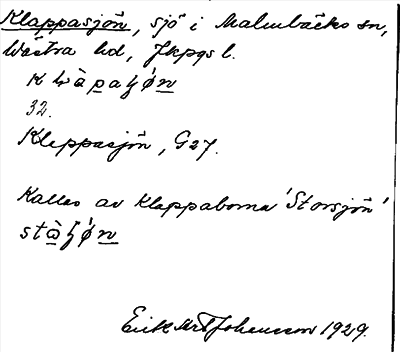 Klappasjön, sjö i Malmbäcks sn,
Västra hd, Jkpgs l.
32.
Kleppasjön, G27.
Kallas av Klappaborna 'Storsjön'
Erik Johansson 1929.